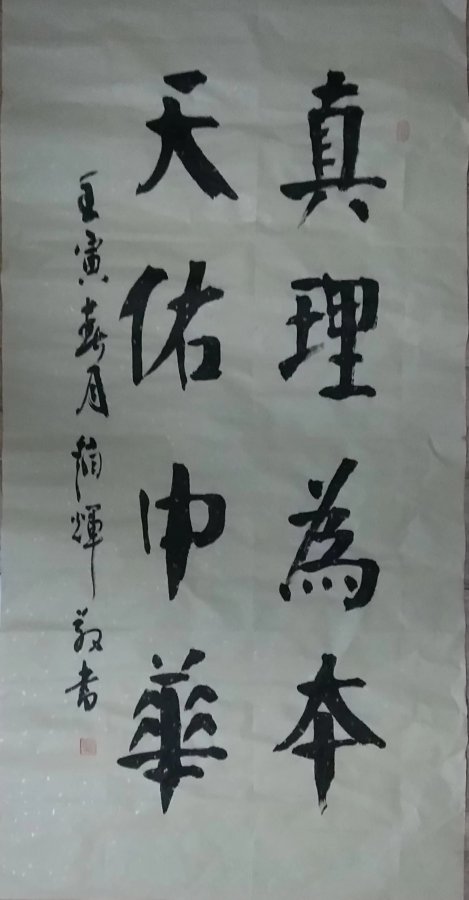 真理為本
天佑中華
壬寅春月 輝敬书